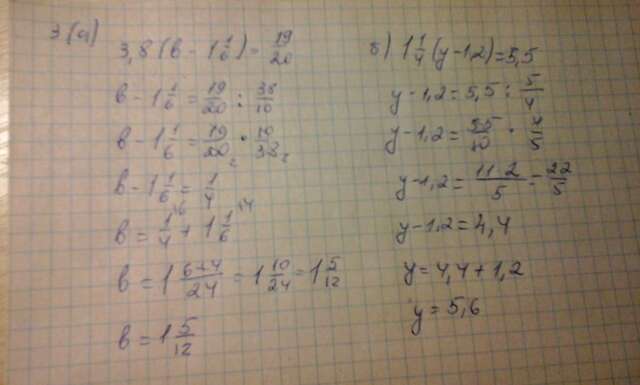 3(а)
3,8(в - 1 1/6) = 19/20
в - 1 1/6 = 19/20 : 38/10
в - 1 1/6 = 19/20 2 · 10/38 2
в - 1 1/6 = 1/4
в = 1/4 \6 + 1 1/6 \4
в = 1 6+4/24 = 1 10/24 = 1 5/12
в = 1 5/12
б) 1 1/4 (y - 1,2) = 5,5
y - 1,2 = 5,5 : 5/4
y - 1,2 = 55/10 · 4/5
y - 1,2 = 11·2/5 = 22/5
y - 1,2 = 4,4
y = 4,4 + 1,2
y = 5,6